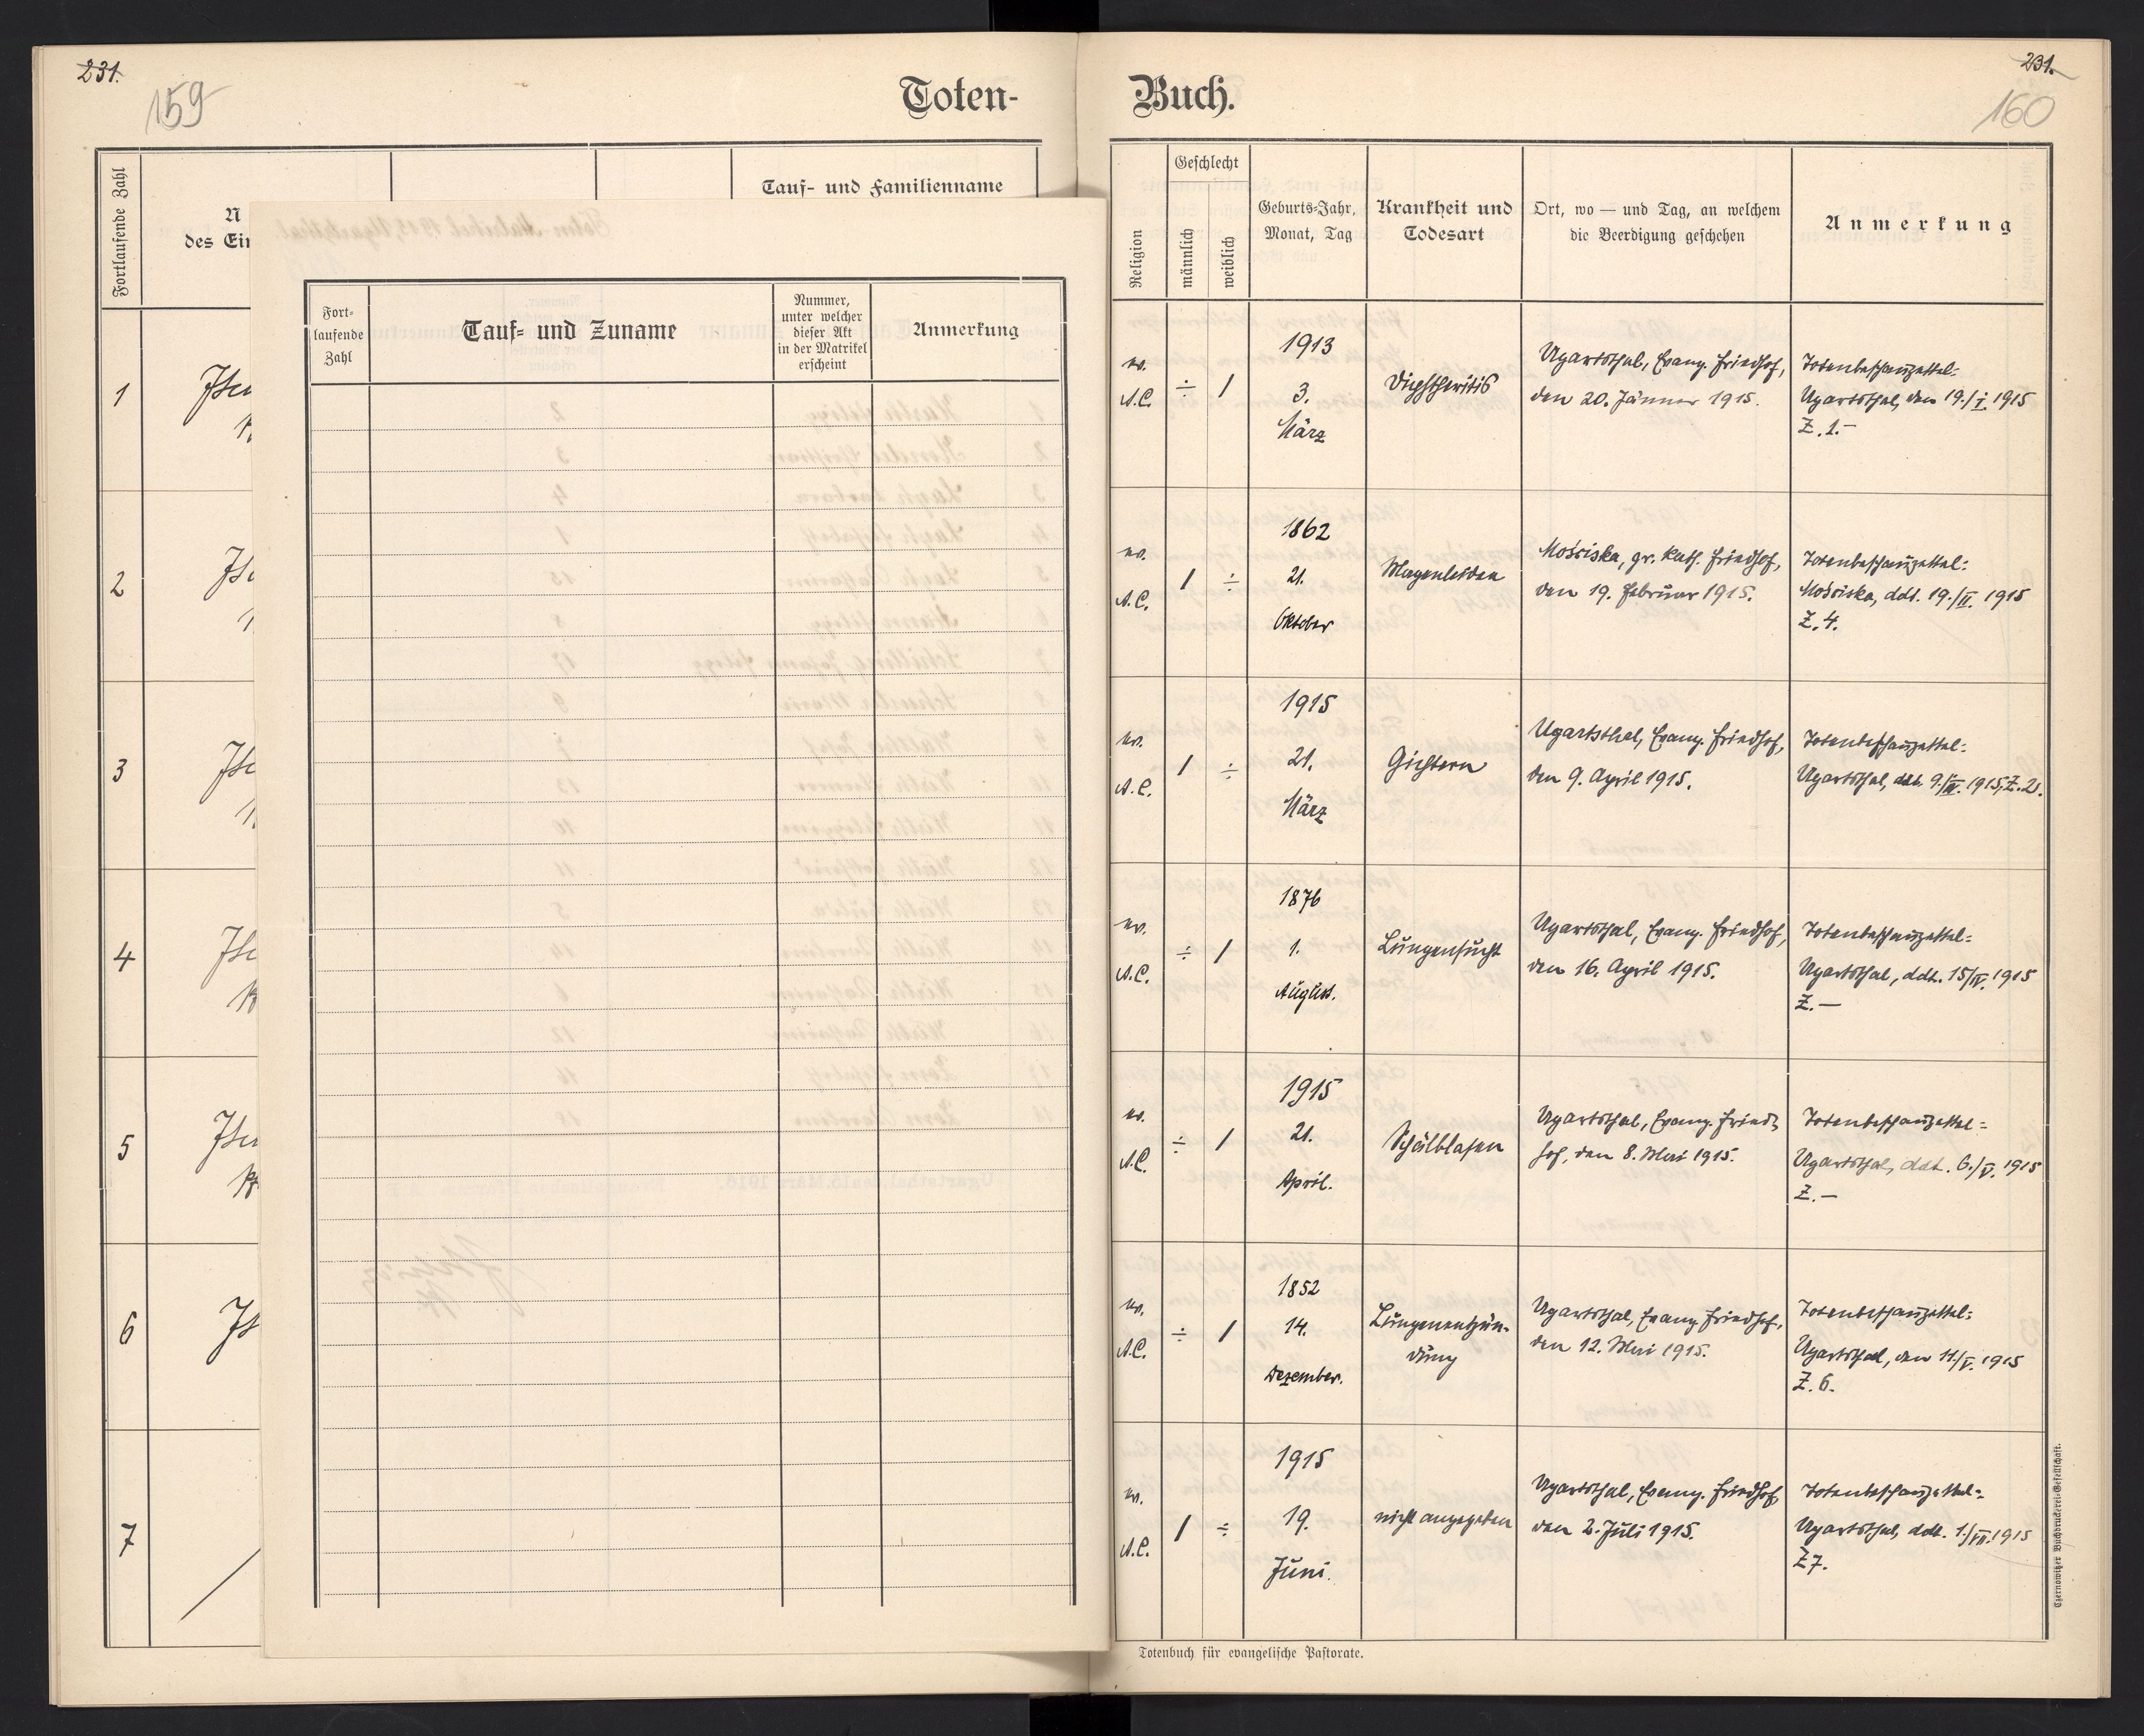 231.
159
Toten-
Fortlaufende Zahl
N
des Ein
Tauf- und Familienname
1
2
3
4
5
6
7
Fort-
laufende
Zahl
Tauf- und Zuname
Nummer,
unter welcher
dieser Akt
in der Matrikel
erscheint
Anmerkung
Buch.
231.
160
Religion
Geschlecht
männlich
weiblich
Geburts-Jahr,
Monat, Tag
Krankheit und
Todesart
Ort, wo — und Tag, an welchem
die Beerdigung geschehen
Anmerkung
ev.
A.C.
÷ /
1913
3.
März
Diphtheritis
Ugartsthal, Evang. Friedhof,
den 20. Jänner 1915.
Totenbeschauzettel:
Ugartsthal, den 19./I. 1915
Z. 1.-
ev.
A.C.
/ ÷
1862
21.
Oktober
Magenleiden
Mościska, gr. kath. Friedhof,
den 19. Februar 1915.
Totenbeschauzettel:
Mościska, ddt. 19./II. 1915
Z. 4.
ev.
A.C.
/ ÷
1915
21.
März
Gichtern
Ugartsthal, Evang. Friedhof,
den 9. April 1915.
Totenbeschauzettel:
Ugartsthal, ddt. 9./IV. 1915, Z. 2.
ev.
A.C.
÷ /
1876
1.
August.
Lungensucht
Ugartsthal, Evang. Friedhof,
den 16. April 1915.
Totenbeschauzettel:
Ugartsthal, ddt. 15/IV. 1915
Z. —
ev.
A.C.
÷ /
1915
21.
April.
Schälblasen
Ugartsthal, Evang. Fried-
hof, den 8. Mai 1915.
Totenbeschauzettel:
Ugartsthal, ddt. 6./V. 1915
Z. —
ev.
A.C.
÷ /
1852
14.
Dezember.
Lungenentzün-
dung
Ugartsthal, Evang. Friedhof,
den 12. Mai 1915.
Totenbeschauzettel:
Ugartsthal, den 11./V. 1915
Z. 6.
ev.
A.C.
/ ÷
1915
19.
Juni.
nicht angegeben
Ugartsthal, Evang. Friedhof,
den 2. Juli 1915.
Totenbeschauzettel:
Ugartsthal, ddt. 1./VII. 1915
Z 7.
Totenbuch für evangelische Pastorate.
Czernowitzer Buchdruckerei-Gesellschaft.